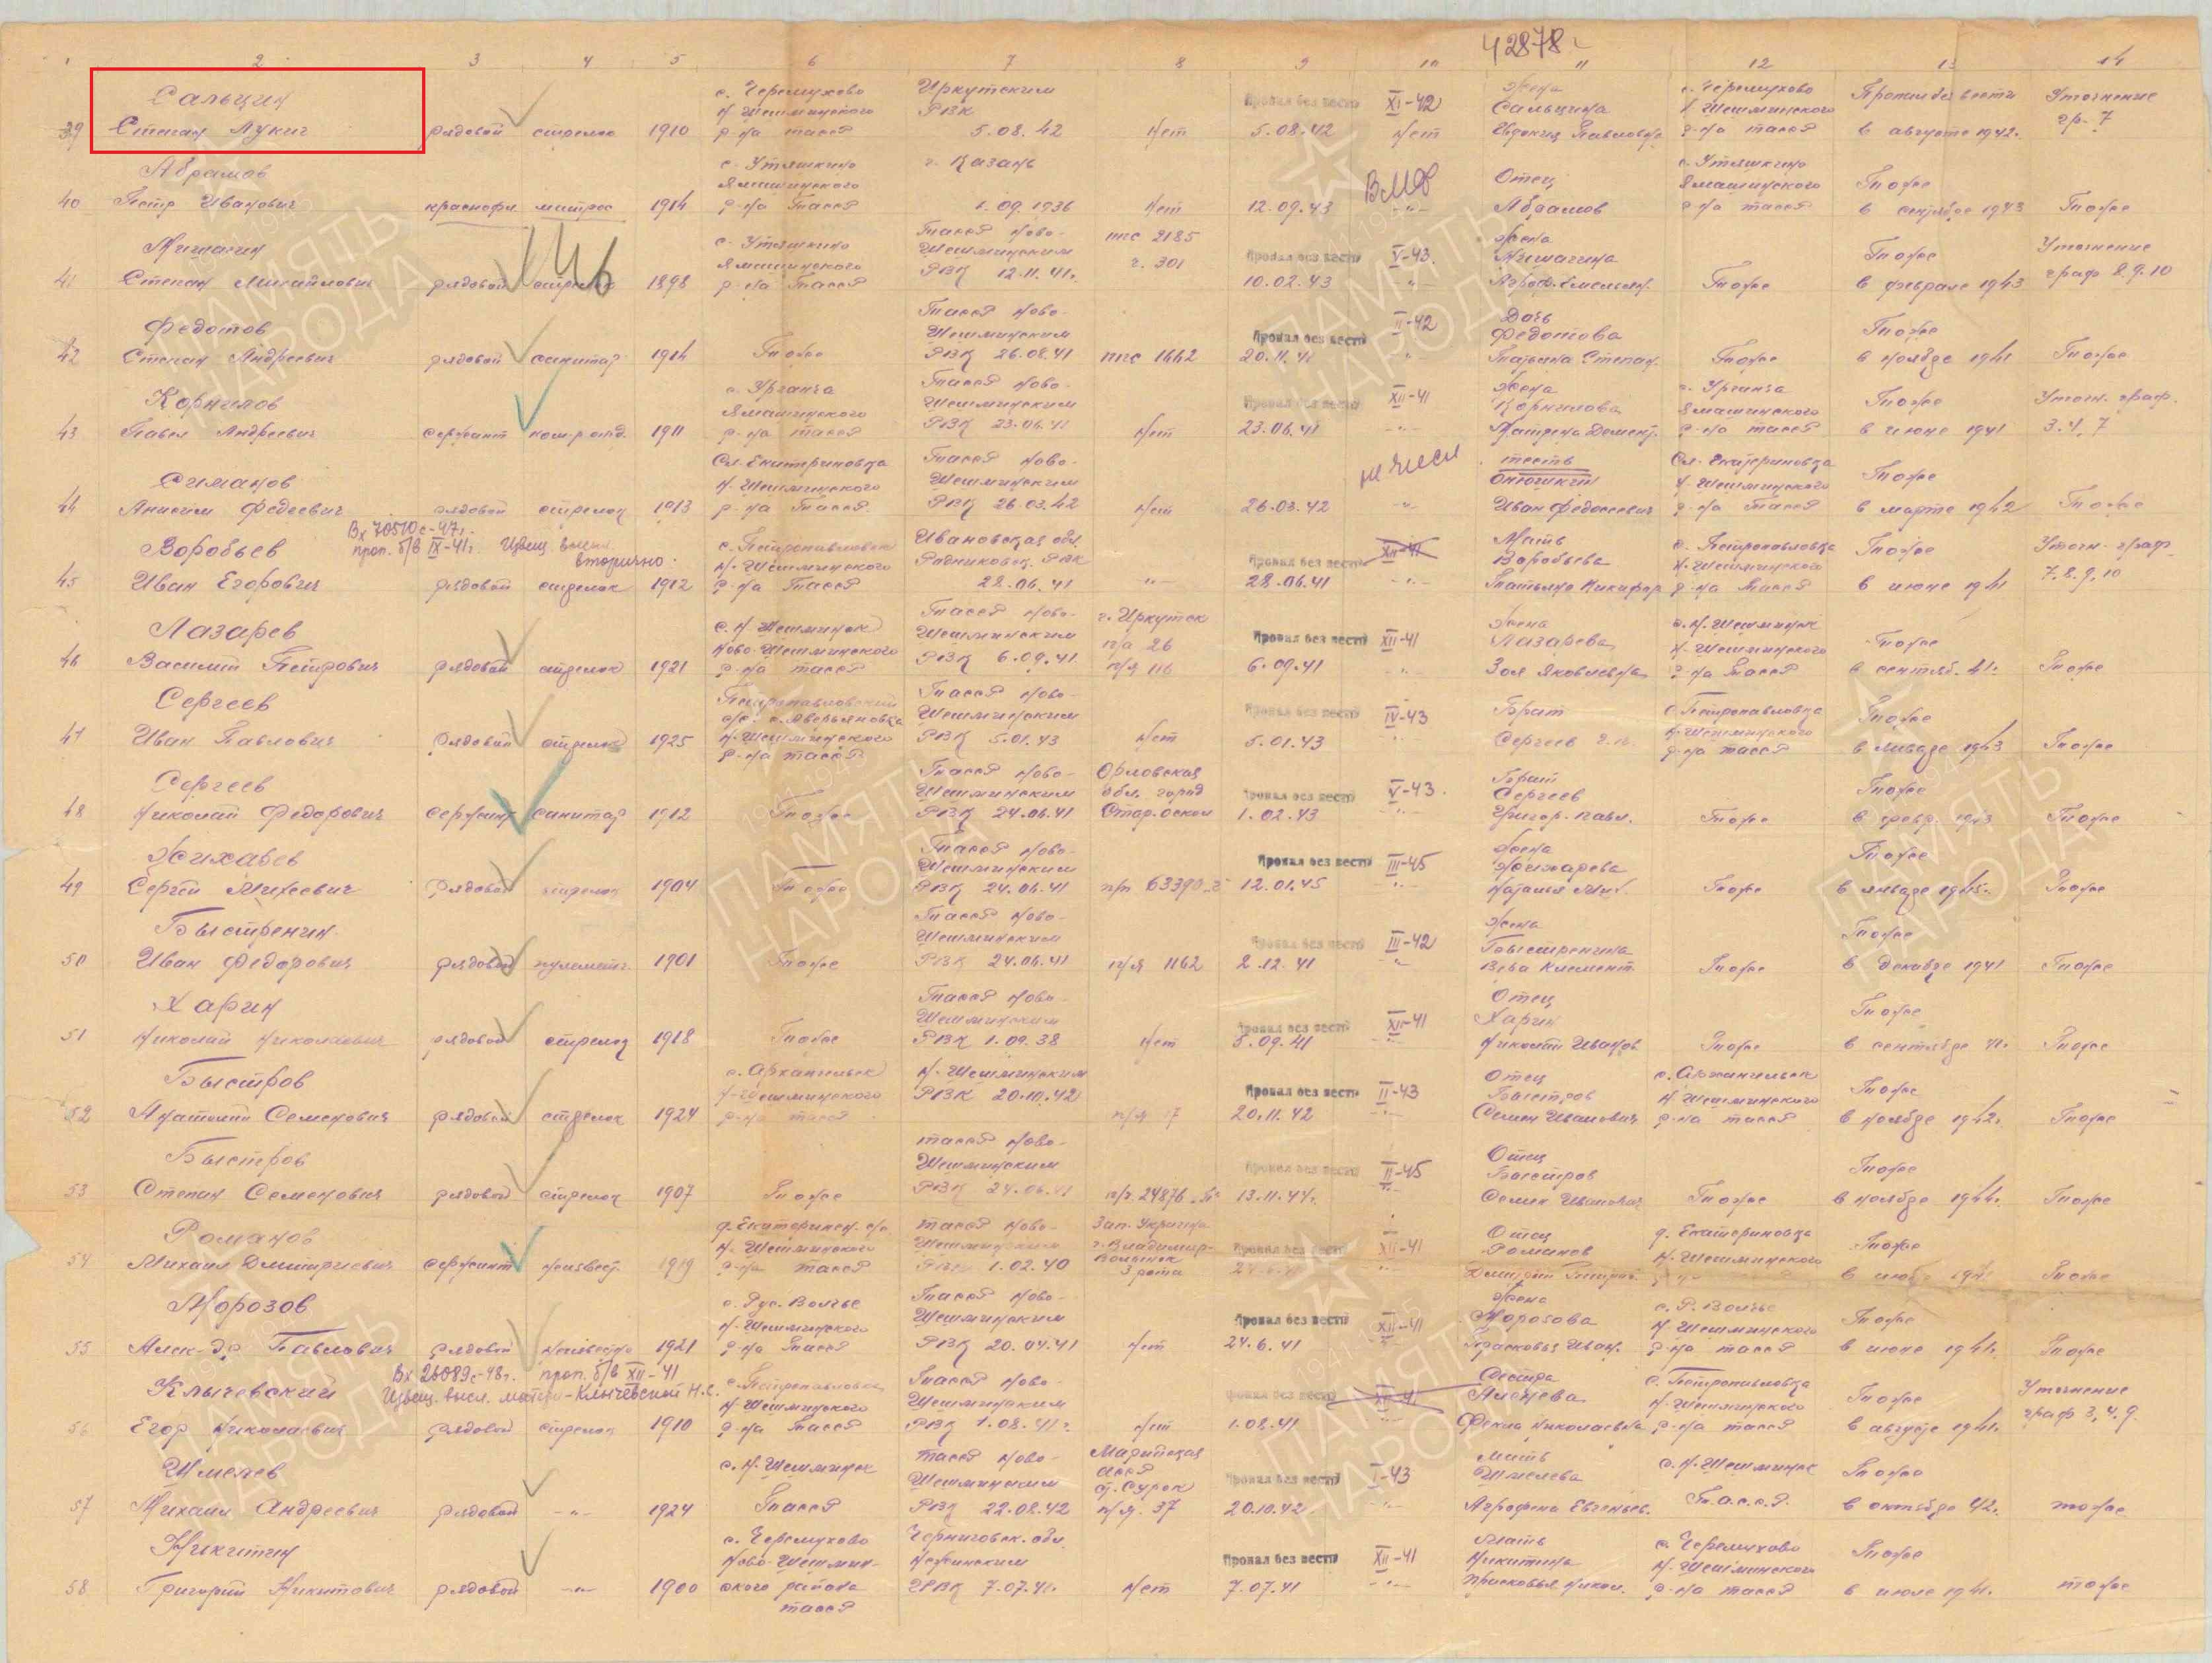 42878с
1 2 3 4 5 6 7 8 9 10 11 12 13 14
39 Сальцин Степан Лукич рядовой стрелок 1910 с. Черемухово Н-Шешминского р-на ТАССР Иркутским РВК 5.08.42 Нет 5.08.42 Пропал без вести XI-42 Нет Жена Сальцина Евдокия Павловна с. Черемухово Н-Шешминского р-на ТАССР Пропал без вести в августе 1942. Уточнение гр. 7
40 Абрамов Петр Иванович краснофл матрос 1914 с. Утяшкино Ямашинского р-на ТАССР г. Казань 1.09.1936 Нет 12.09.43 ВМФ -"- Отец Абрамов с. Утяшкино Ямашинского р-на ТАССР То же в сентябре 1943 То же
41 Мишагин Степан Михайлович рядовой стрелок 1898 с. Утяшкино Ямашинского р-на ТАССР ТАССР Ново-Шешминским РВК 12.11.41г. ппс 2185 ч. 301 Пропал без вести 10.02.43 V-43. -"- Жена Мишагина То же То же в феврале 1943 Уточнение граф 8.9.10
42 Федотов Степан Андреевич рядовой санитар 1914 То же ТАССР Ново-Шешминским РВК 26.08.41 ппс 1442 Пропал без вести 20.11.41 II-42 -"- Дочь Федотова Татьяна Степан. То же То же в ноябре 1941 То же
43 Корнилов Павел Андреевич сержант ком.отд. 1911 с. Урганча Ямашинского р-на ТАССР ТАССР Ново-Шешминским РВК 23.06.41 Нет Пропал без вести 23.06.41 XII-41 -"- Жена Корнилова с. Урганча Ямашинского р-на ТАССР То же в июне 1941 Уточн. граф. 3.4.7
44 Симанов Анисим Федеевич рядовой стрелок 1913 Сл. Екатериновка Н-Шешминского р-на ТАССР ТАССР Ново-Шешминским РВК 26.03.42 Нет 26.03.42 -"- тесть Иван Федосеевич Сл. Екатериновка Н-Шешминского р-на ТАССР То же в марте 1942 То же
Вх 70510с-47г. проп. б/в IX-41г. Извещ. высл. вторично.
45 Воробьев Иван Егорович рядовой стрелок 1912 с. Петропавловск Н-Шешминского р-на ТАССР Ивановская обл Родниковск. РВК 28.06.41 -"- Пропал без вести 28.06.41 XII-41 -"- Мать Воробьева Татьяна Никифор с. Петропавловка Н-Шешминского р-на ТАССР То же в июне 1941 Уточн. граф. 7.8.9.10
46 Лазарев Василий Петрович рядовой стрелок 1921 с. Н-Шешминск Ново-Шешминского р-на ТАССР ТАССР Ново-Шешминским РВК 6.09.41. г. Иркутск п/о 26 п/я 116 Пропал без вести 6.09.41 XII-41 -"- Жена Лазарева Зоя Яковлевна с. Н-Шешминск Н-Шешминского р-на ТАССР То же в сентяб. 41г. То же
47 Сергеев Иван Павлович рядовой стрелок 1925 Петропавловский с/с. с. Аверьяновка Н-Шешминского р-на ТАССР ТАССР Ново-Шешминским РВК 5.01.43 Нет Пропал без вести 5.01.43 IV-43 Брат Сергеев с. Петропавловка Н-Шешминского р-на ТАССР То же в январе 1943 То же
48 Сергеев Николай Федорович сержант санитар 1912 То же ТАССР Ново-Шешминским РВК 24.06.41 Орловская обл. город Стар. Оскол Пропал без вести 1.02.43 V-43. -"- Брат Сергеев Григор. Павл. То же То же в февр. 1943 То же
49 Жихарев Сергей Михеевич рядовой стрелок 1904 То же ТАССР Ново-Шешминским РВК 24.06.41 п/п 63390 Пропал без вести 12.01.45 III-45 -"- Жена Жихарева Наталья Мих. То же То же в январе 1945г. То же
50 Быстренин Иван Федорович рядовой пулеметч. 1901 То же ТАССР Ново-Шешминским РВК 24.06.41 п/я 1162 Пропал без вести 2.12.41 III-42 -"- Жена Быстренина Вера Клемент. То же То же в декабре 1941 То же
51 Харин Николай Николаевич рядовой стрелок 1918 То же ТАССР Ново-Шешминским РВК 1.09.38 Нет Пропал без вести 5.09.41 XI-41 -"- Отец Харин Николай Иванов То же То же в сентябре 41. То же
52 Быстров Анатолий Семенович рядовой стрелок 1924 с. Архангельск Н-Шешминского р-на ТАССР Н-Шешминским РВК 20.10.42 п/я 17 Пропал без вести 20.11.42 II-43 -"- Отец Быстров Семен Иванович с. Архангельск Н-Шешминского р-на ТАССР То же в ноябре 1942г. То же
53 Быстров Степан Семенович рядовой стрелок 1907 То же ТАССР Ново-Шешминским РВК 24.06.41 п/п 24876 Пропал без вести 13.11.44г. II-45 -"- Отец Быстров Семен Иванович То же То же в ноябре 1944г. То же
54 Романов Михаил Дмитриевич сержант неизвест. 1919 д. Екатеринов. с/с. Н-Шешминского р-на ТАССР ТАССР Ново-Шешминским РВК 1.02.40 Зап. Украина г. Владимир-Волынск 3 рота Пропал без вести XII-41 -"- Отец Романов д. Екатериновка Н-Шешминского То же То же
55 Морозов Алек-др Павлович рядовой неизвестно 1921 с. Рус. Волчье Н-Шешминского р-на ТАССР ТАССР Ново-Шешминским РВК 20.04.41 Нет Пропал без вести 24.6.41 XII-41 -"- Жена Морозова Прасковья Иван. с. Р. Волчье Н-Шешминского р-на ТАССР То же в июне 1941г. То же
Вх 26089с-48г. проп. б/в XII-41
Извещ. высл. матери-Клычевской Н.С.
56 Клычевский Егор Николаевич рядовой стрелок 1910 с. Петропавловка Н-Шешминского р-на ТАССР ТАССР Ново-Шешминским РВК 1.08.41г. Нет Пропал без вести 1.08.41 XII-41 Сестра Фекла Николаевна с. Петропавловка Н-Шешминского р-на ТАССР То же в августе 1941г. Уточнение граф 3,4.9.
57 Шмелев Михаил Андреевич рядовой -"- 1924 с. Н-Шешминск ТАССР ТАССР Ново-Шешминским РВК 22.08.42 Марийская АССР ст. Сурок п/я. 37 Пропал без вести 20.10.42 I-43 -"- Мать Шмелева Агрофена Евгеньев. с. Н-Шешминск Т.А.С.С.Р. То же в октябре 42г. то же
58 Никитин Григорий Никитович рядовой -"- 1900 с. Черемухово Ново-Шешминского района ТАССР Черниговск. обл. Нежинским ГРВК 7.07.41. Нет Пропал без вести 7.07.41 XII-41 -"- Мать Никитина Прасковья Никол. с. Черемухово Н-Шешминского р-на ТАССР То же в июле 1941. то же
ПАМЯТЬ НАРОДА
1941-1945